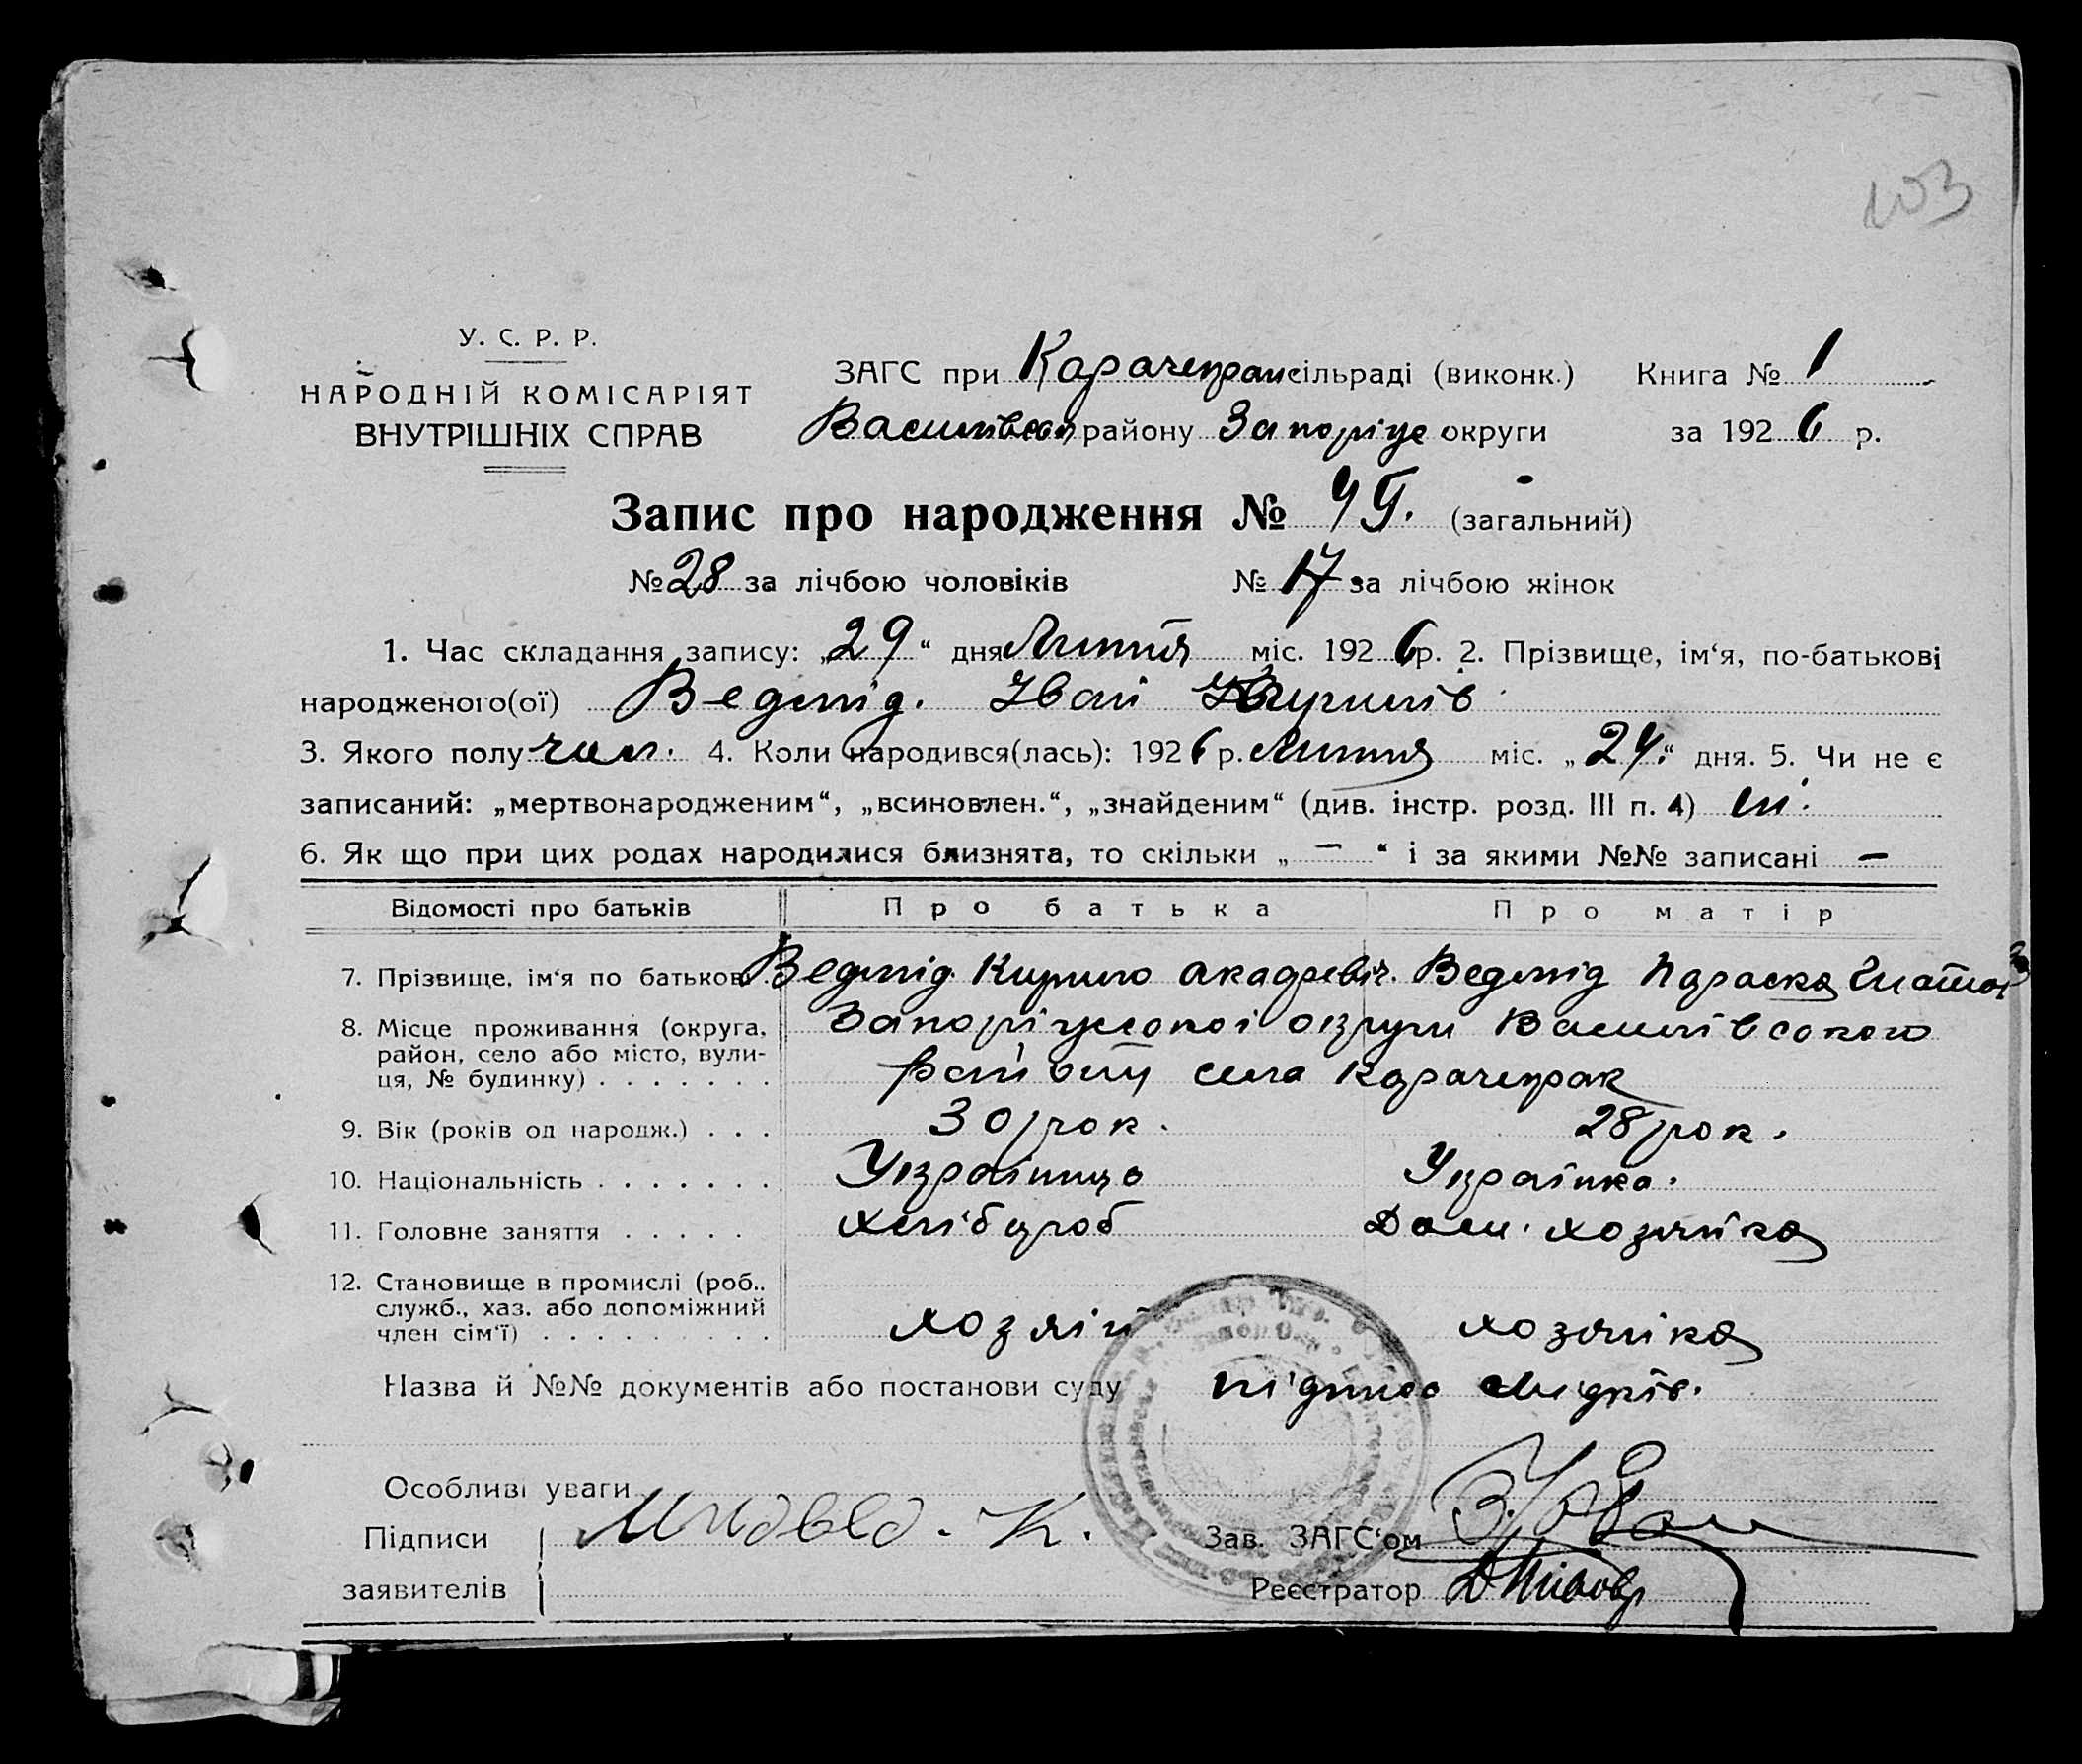 103
У. С. Р. Р.
НАРОДНІЙ КОМІСАРІЯТ
ВНУТРІШНІХ СПРАВ
ЗАГС при Карачекрак сільраді (виконк.) Книга № 1
Василівськ району Запоріж округи за 1926 р.
Запис про народження № 45. (загальний)
№ 28 за лічбою чоловіків № 17 за лічбою жінок
1. Час складання запису: „29“ дня Липня міс. 1926 р. 2. Прізвище, ім‘я, по-батькові
народженого(ої) Ведмід. Іван Кирилів
3. Якого полу чол. 4. Коли народився(лась): 1926 р. Липня міс. „24.“ дня. 5. Чи не є
записаний: „мертвонародженим“, „всиновлен.“, „знайденим“ (див. інстр. розд. III п. 4) ні.
6. Як що при цих родах народилися близнята, то скільки „ — “ і за якими №№ записані —
Відомості про батьків Про батька Про матір
7. Прізвище, ім‘я по батькові. Ведмід Кирило Ведмід Параска
8. Місце проживання (округа, Запоріжської округи Василівського
район, село або місто, вули-
ця, № будинку) . . . . . . . району села Карачекрак
9. Вік (років од народж.) . . . 30 рок. 28 рок.
10. Національність . . . . . . . Українць Українка.
11. Головне заняття . . . . . Хлібороб Дом. хозяйка
12. Становище в промислі (роб.,
служб., хаз. або допоміжний
член сім‘ї) . . . . . . . . . хозяін хозяйка
Назва й №№ документів або постанови суду підпис свидків.
Особливі уваги
Підписи
заявителів
Зав. ЗАГС‘ом
Реєстратор